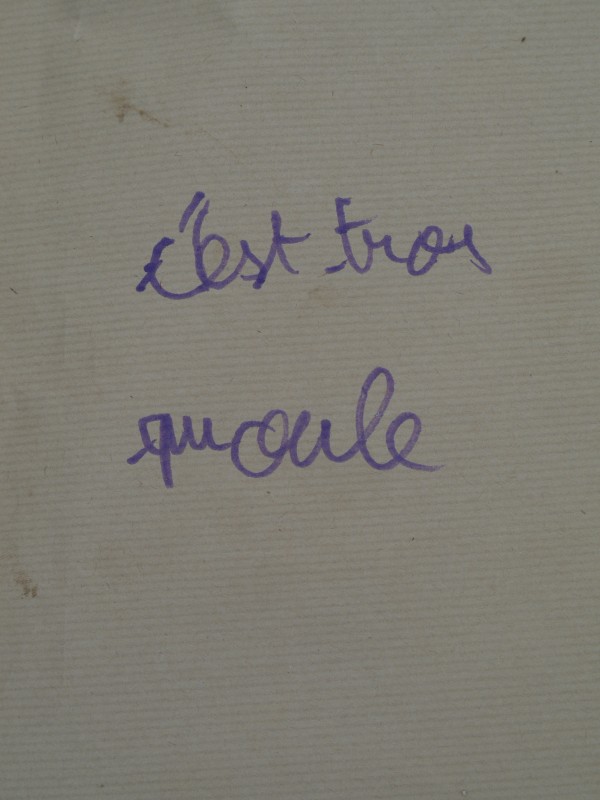 c'est trop
quoule